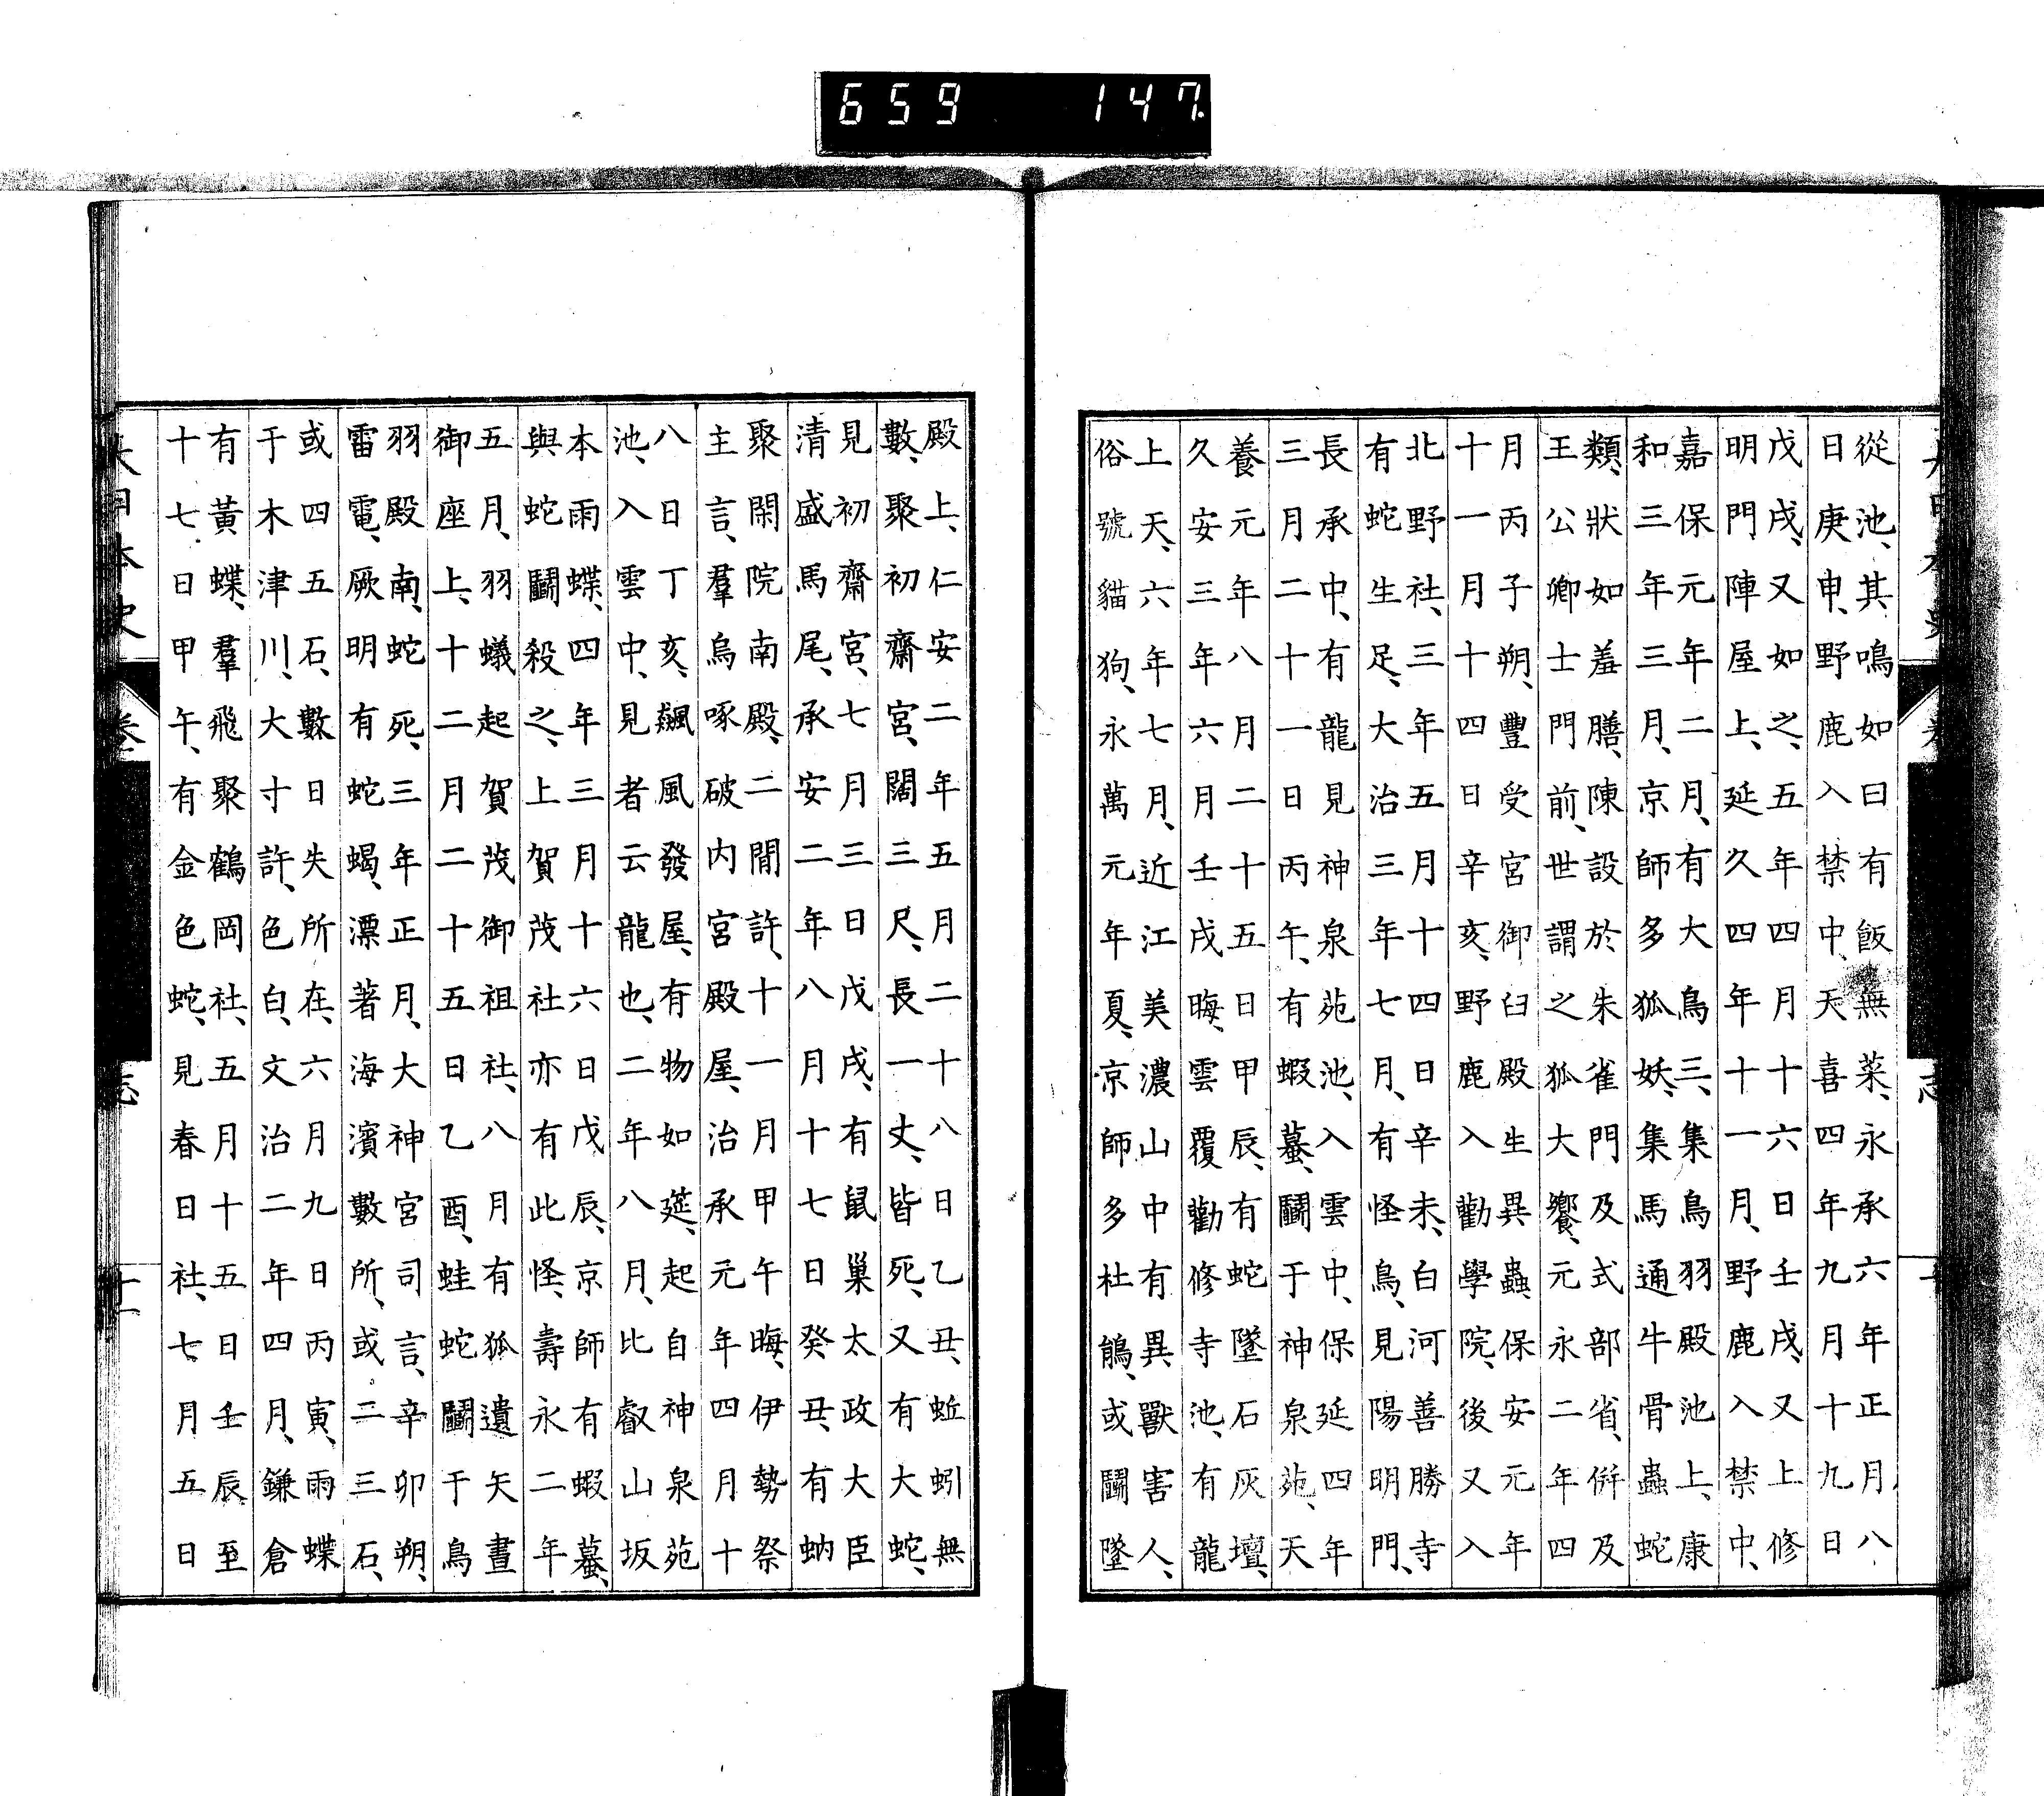 從池、其鳴如曰有飯無菜、永承六年正月八
日庚申、野鹿入禁中、天喜四年九月十九日
戊戌、又如之、五年四月十六日壬戌、又上修
明門陣屋上、延久四年十一月、野鹿入禁中、
嘉保元年二月、有大鳥三、集鳥羽殿池上、康
和三年三月、京師多狐妖、集馬通牛骨蟲蛇
類、狀如羞膳、陳設於朱雀門及式部省、併及
王公卿士門前、世謂之狐大饗、元永二年四
月丙子朔、豐受宮御臼殿生異蟲、保安元年
十一月十四日辛亥、野鹿入勸學院、後又入
北野社、三年五月十四日辛未、白河善勝寺
有蛇生足、大治三年七月、有怪鳥、見陽明門、
長承中、有龍見神泉苑池、入雲中、保延四年
三月二十一日丙午、有蝦蟇、鬭于神泉苑、天
養元年八月二十五日甲辰、有蛇墜石灰壇、
久安三年六月壬戌晦、雲覆勸修寺池、有龍
上天、六年七月、近江美濃山中有異獸害人、
俗號貓狗、永萬元年夏、京師多杜鵑、或鬭墜
殿上、仁安二年五月二十八日乙丑、蚯蚓無
數、聚初齋宮、闊三尺、長一丈、皆死、又有大蛇、
見初齋宮、七月三日戊戌、有鼠巢太政大臣
清盛馬尾、承安二年八月十七日癸丑、有蚋
聚閑院南殿、二間許、十一月甲午晦、伊勢祭
主言、羣烏啄破內宮殿屋、治承元年四月十
八日丁亥、飆風發屋、有物如筵、起自神泉苑
池、入雲中、見者云龍也、二年八月、比叡山坂
本雨蝶、四年三月十六日戊辰、京師有蝦蟇、
與蛇鬭殺之、上賀茂社亦有此怪、壽永二年
五月、羽蟻起賀茂御祖社、八月有狐遺矢晝
御座上、十二月二十五日乙酉、蛙蛇鬭于鳥
羽殿南、蛇死、三年正月、大神宮司言、辛卯朔、
雷電、厥明有蛇蝎、漂著海濱數所、或二三石、
或四五石、數日失所在、六月九日丙寅、雨蝶
于木津川、大寸許、色白、文治二年四月、鎌倉
有黃蝶、羣飛聚鶴岡社、五月十五日壬辰至
十七日甲午、有金色蛇、見春日社、七月五日
大日本史
卷
志
十一
659 147